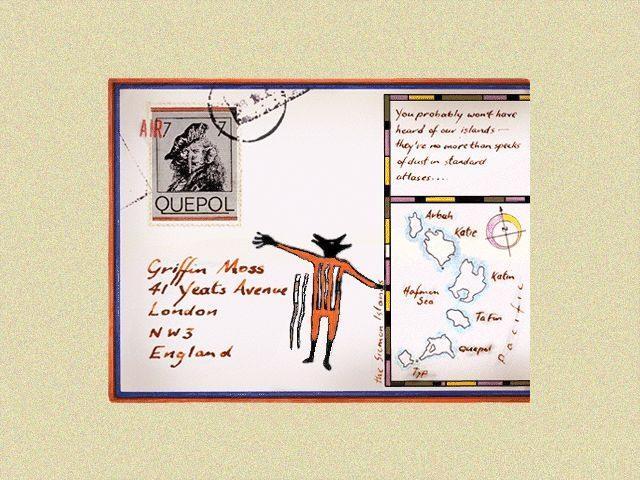 AIR
7 7
QUEPOL
Griffin Moss
41 Yeats Avenue
London
NW3
England
You probably won't have
heard of our islands —
they're no more than specks
of dust in standard
atlases....
Arbah
Katie
Katin
Hafmon
Sea
Ta Fin
Quepol
Typ
the Sicmon Islands
Pacific